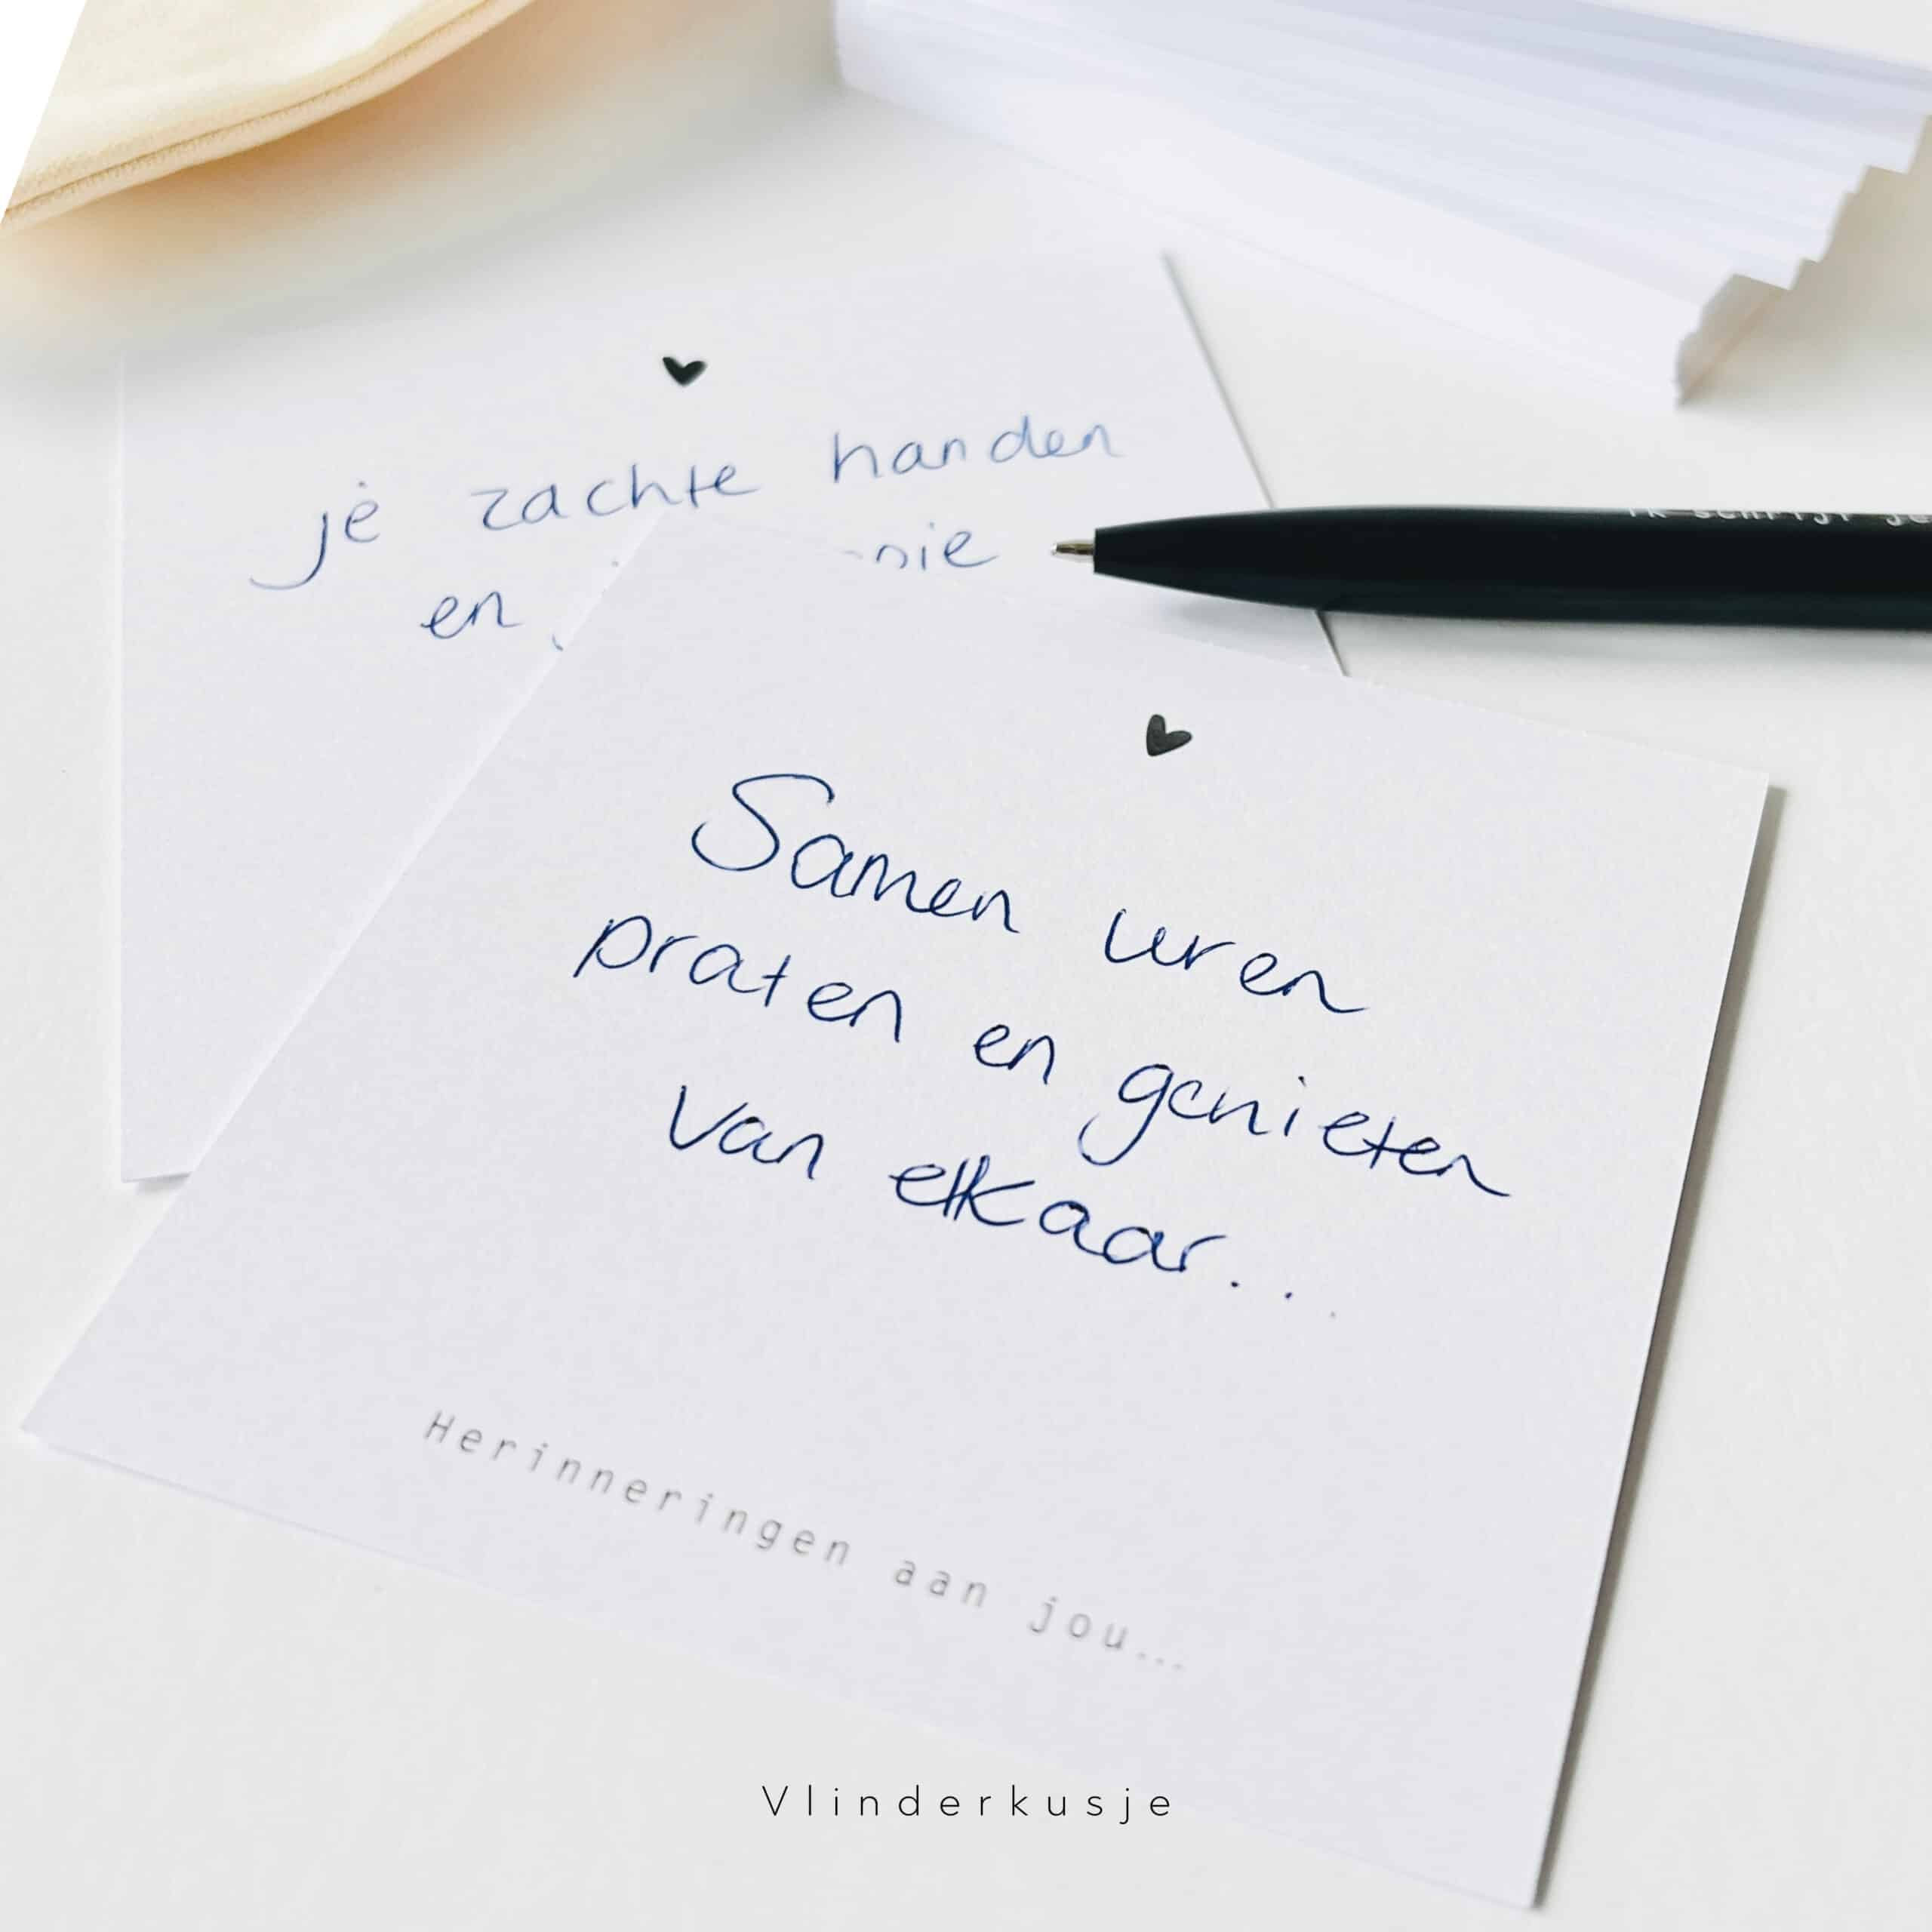 je zachte handen
en
Samen uren
praten en genieten
van elkaar...
Herinneringen aan jou...
Vlinderkusje